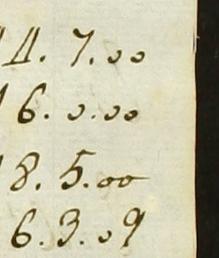 4. 7.00
6. 0.00
8. 5.00
6. 3. 09